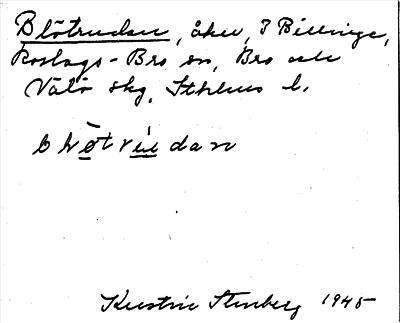 Blötrudan, åker, I Billinge,
Roslags-Bro sn, Bro och
Vätö skg, Sthlms l.
Kerstin Stenberg 1945